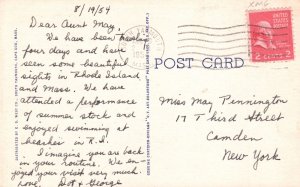 8/19/54
XMG
Dear Aunt May,
We have been traveling
four days and have
seen some beautiful
sights in Rhode Island
and Mass. We have
attended a performance
of summer stock and
enjoyed swimming at
beaches in R.I.
I imagine you are back
in your routine. We en-
joyed your visit very much.
Love, Dot & George
UNITED STATES
POSTAGE
2 CENTS 2
POST CARD
Miss May Pennington
17 Third Street
Camden
New York